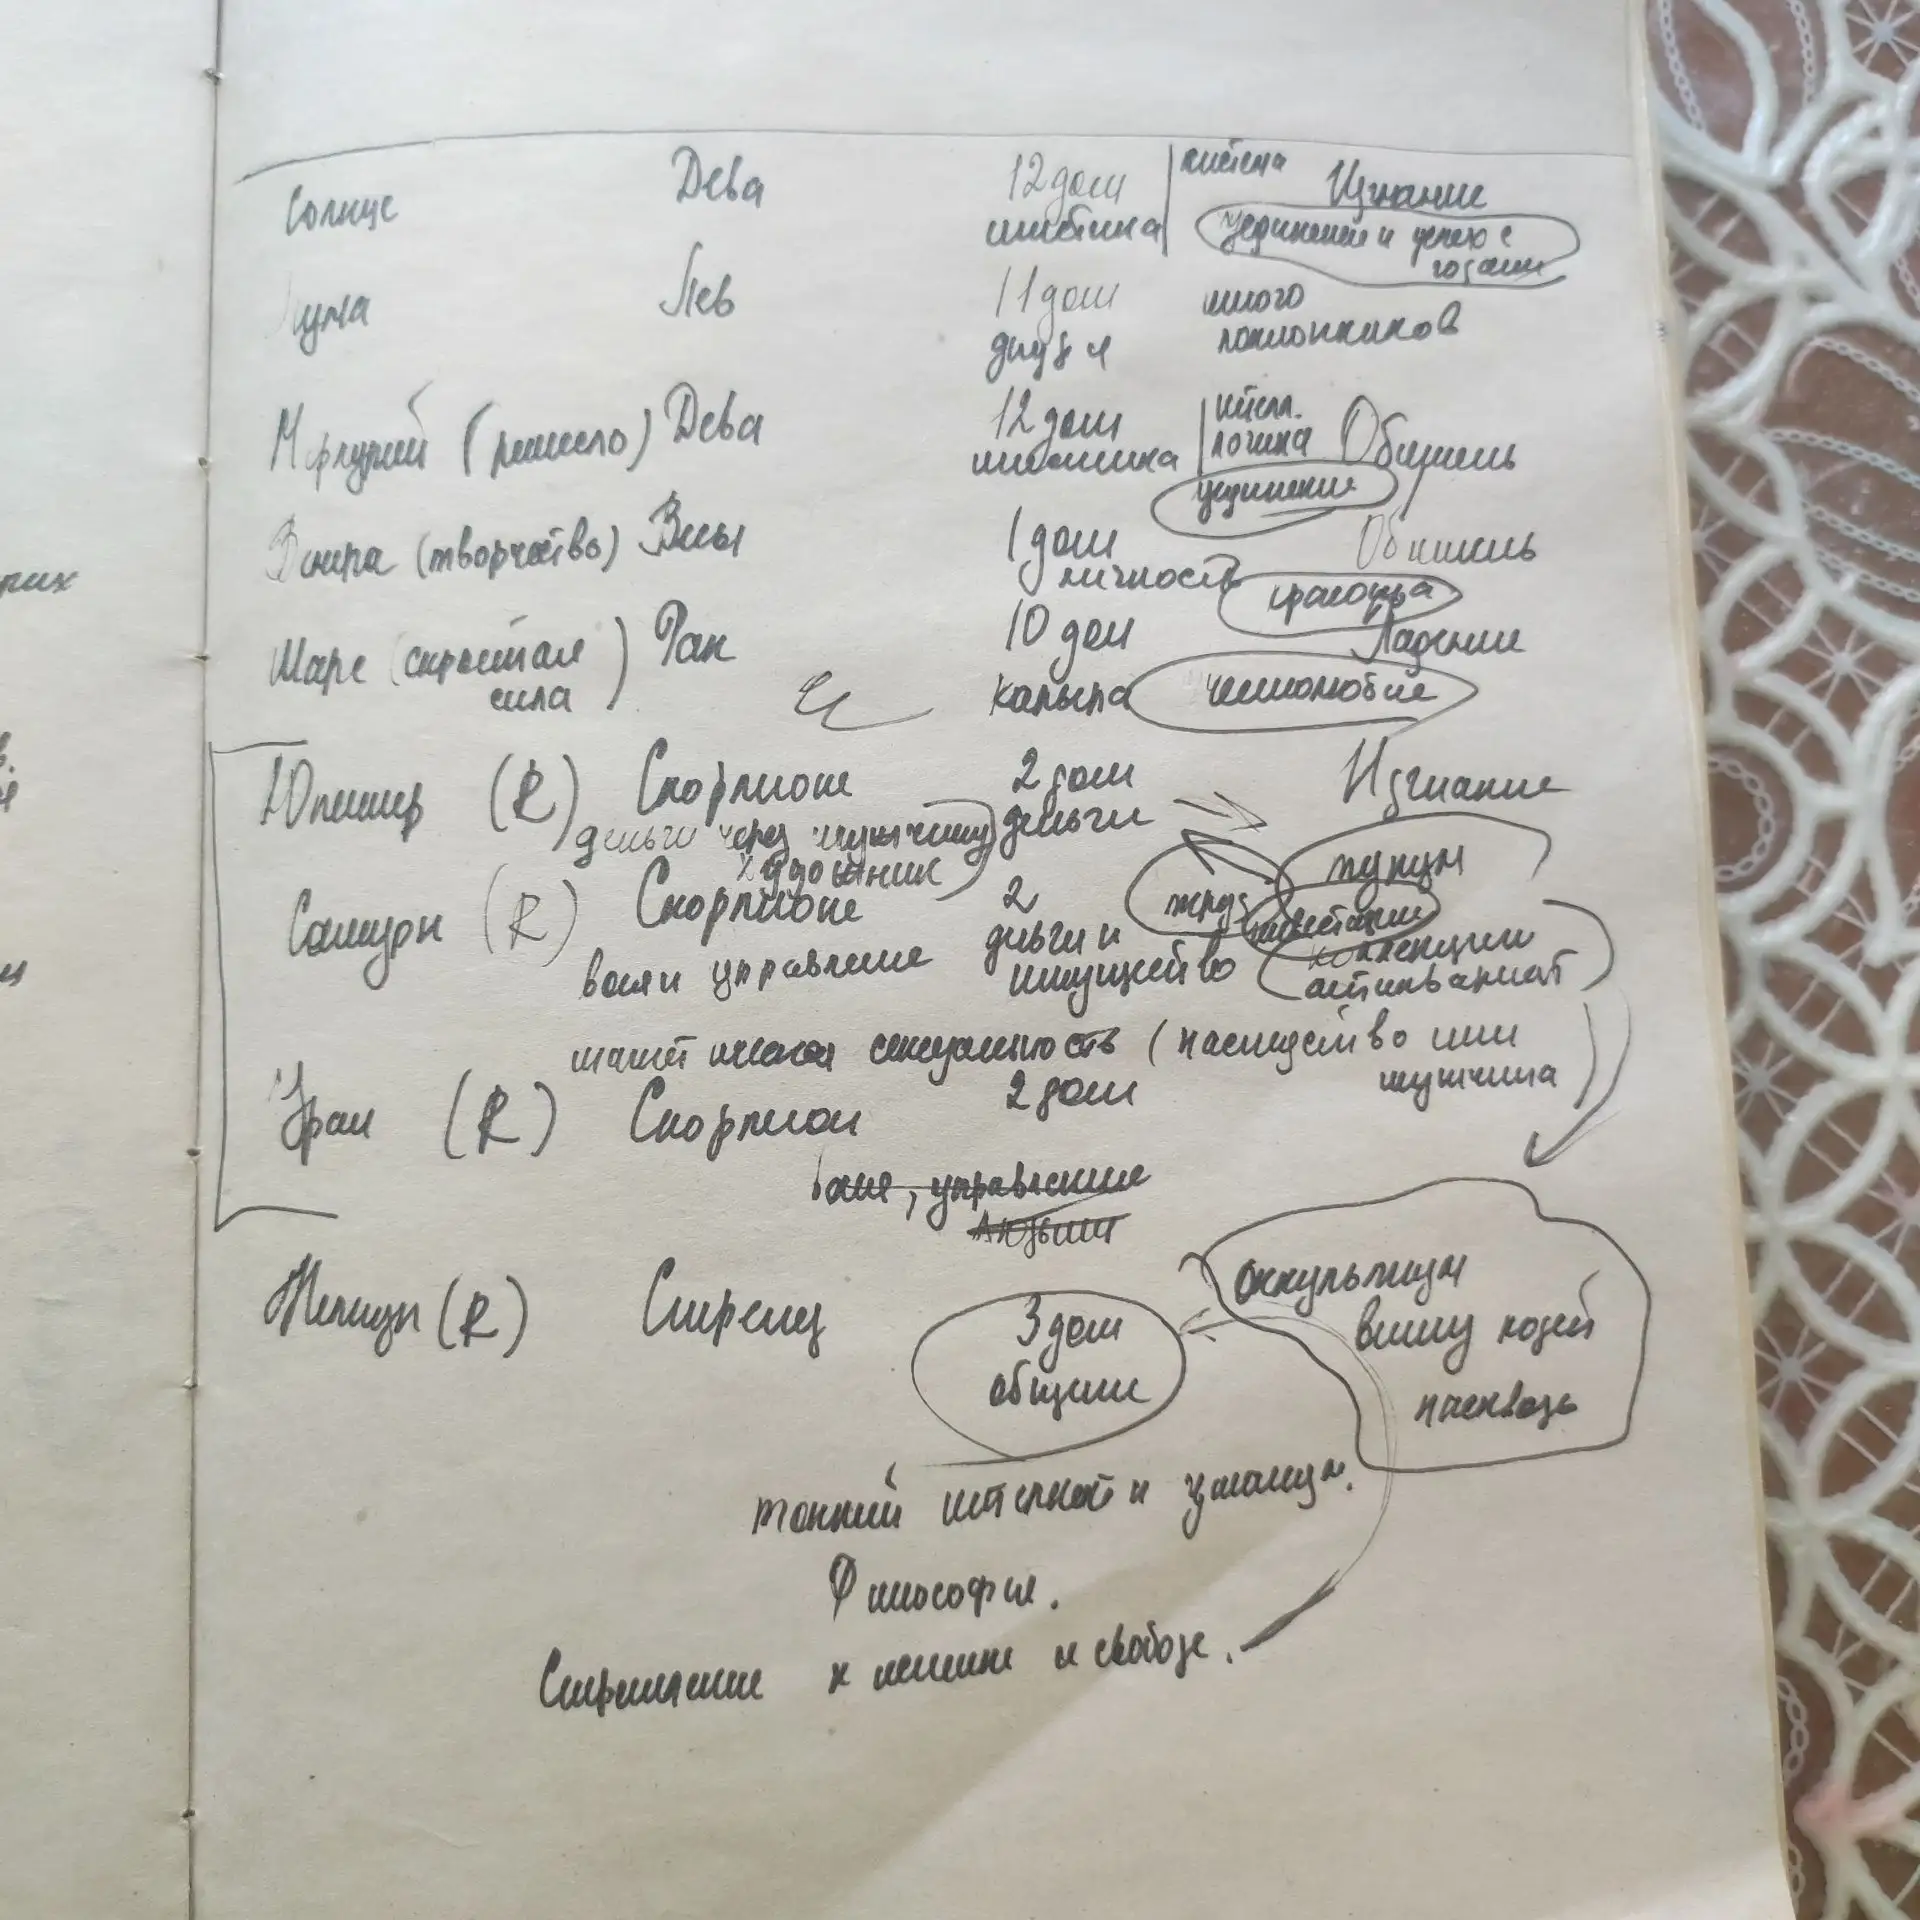 Солнце Дева 12 дом мистика Изгнание
уединение и успех с годами
Луна Лев 11 дом друзья много поклонников
Меркурий (ремесло) Дева 12 дом мистика логика Обитель
уединение
Венера (творчество) Весы 1 дом личность Обитель
красота
Марс (скрытая сила) Рак 10 дом карьера Падение
честолюбие
Юпитер (R) Скорпион 2 дом деньги Изгнание
деньги через мужчину
художник
Сатурн (R) Скорпион 2 деньги и имущество
труд
инвестиции
коллекции
антиквариат
воля и управление
сексуальность (наследство или мужчина)
Уран (R) Скорпион 2 дом
воля, управление
людьми
Нептун (R) Стрелец 3 дом общение
оккультизм
вижу людей
насквозь
тонкий интеллект и
Философия.
Стремление к истине и свободе.